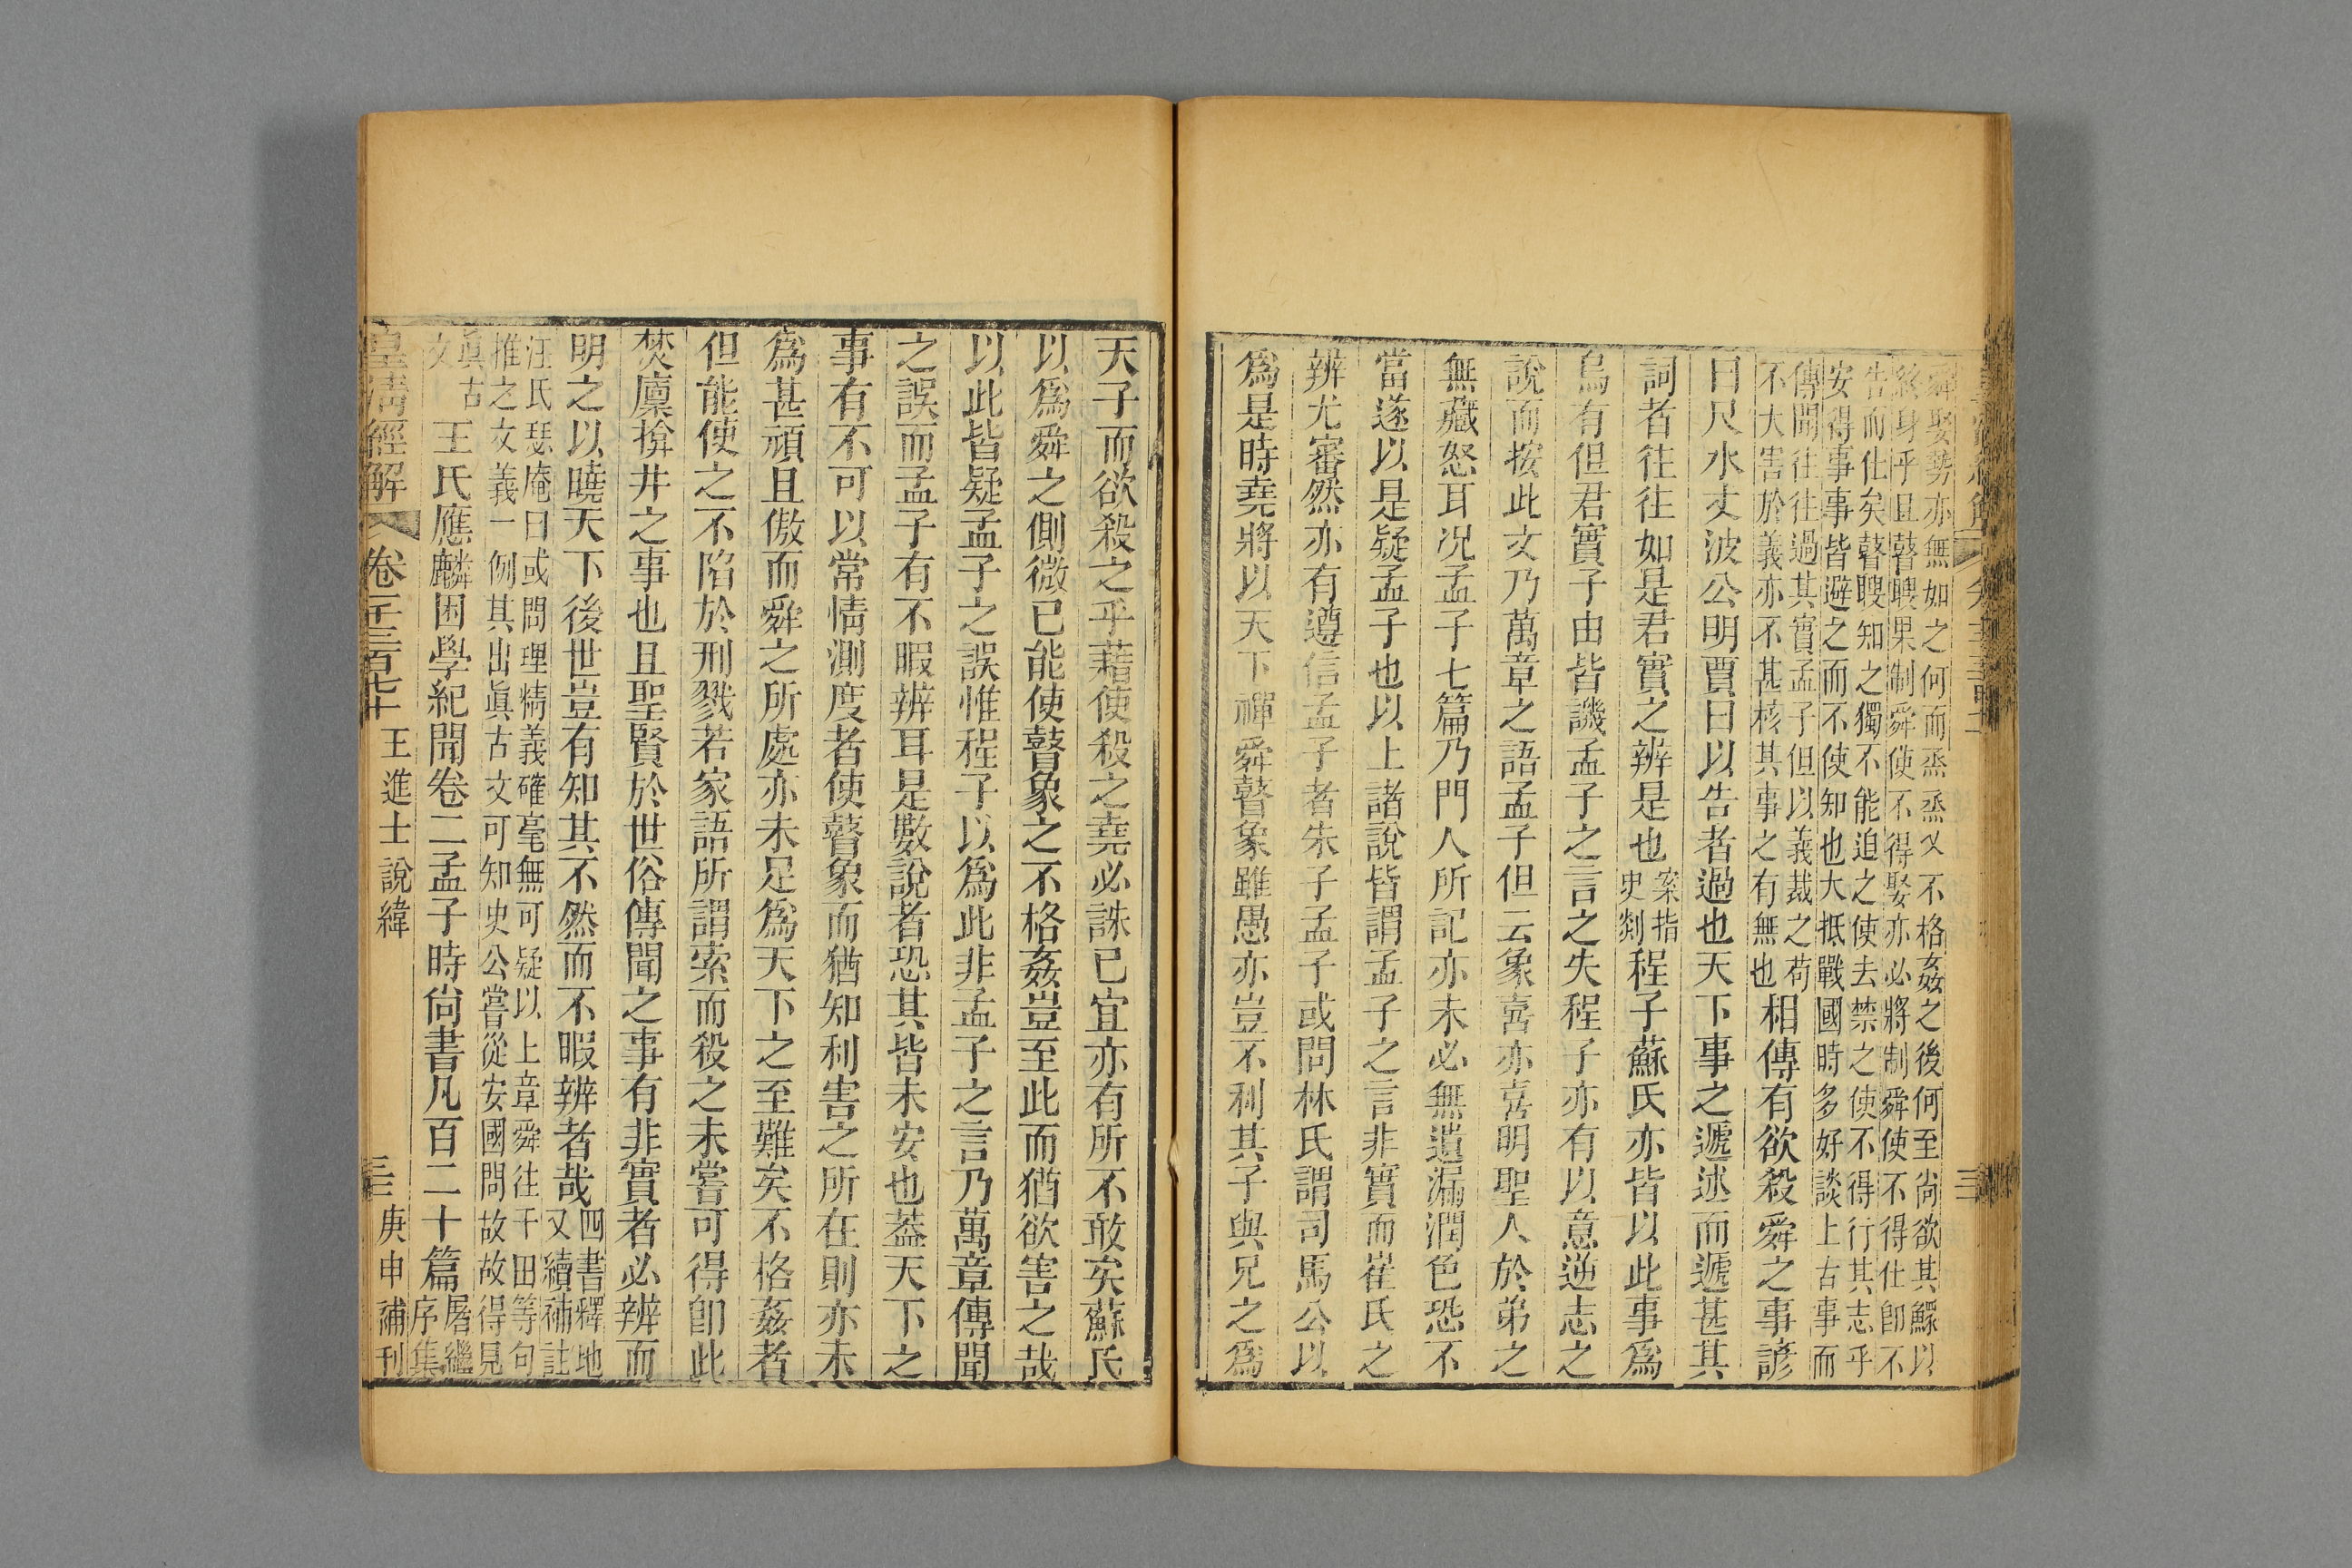 舜娶勢亦無如之何而烝烝乂不格姦之後何至尙欲其鰥以
終身乎且瞽瞍果制舜使不得娶亦必將制舜使不得仕卽不
告而仕矣瞽瞍知之獨不能迫之使去禁之使不得行其志乎
安得事事皆避之而不使知也大抵戰國時多好談上古事而
傳聞往往過其實孟子但以義裁之苟
不大害於義亦不甚核其事之有無也相傳有欲殺舜之事諺
曰尺水丈波公明賈曰以告者過也天下事之遞述而遞甚其
詞者往往如是君實之辨是也案指史剡程子蘇氏亦皆以此事爲
烏有但君實子由皆譏孟子之言之失程子亦有以意逆志之
說而按此文乃萬章之語孟子但云象喜亦喜明聖人於弟之
無藏怒耳况孟子七篇乃門人所記亦未必無遺漏潤色恐不
當遂以是疑孟子也以上諸說皆謂孟子之言非實而崔氏之
辨尤審然亦有遵信孟子者朱子孟子或問林氏謂司馬公以
爲是時堯將以天下禪舜瞽象雖愚亦豈不利其子與兄之爲
天子而欲殺之乎藉使殺之堯必誅已宜亦有所不敢矣蘇氏
以爲舜之側微已能使瞽象之不格姦豈至此而猶欲害之哉
以此皆疑孟子之誤惟程子以爲此非孟子之言乃萬章傳聞
之誤而孟子有不暇辨耳是數說者恐其皆未安也葢天下之
事有不可以常情測度者使瞽象而猶知利害之所在則亦未
爲甚頑且傲而舜之所處亦未足爲天下之至難矣不格姦者
但能使之不陷於刑戮若家語所謂索而殺之未嘗可得卽此
焚廩揜井之事也且聖賢於世俗傳聞之事有非實者必辨而
明之以曉天下後世豈有知其不然而不暇辨者哉四書釋地又續補註
汪氏瑟庵曰或問理精義確毫無可疑以上章舜往于田等句
推之文義一例其出眞古文可知史公嘗從安國問故故得見
眞古文王氏應麟困學紀聞卷二孟子時尙書凡百二十篇屠繼序集
皇淸經解 卷一千三百七十 王進士說緯 三 庚申補刊